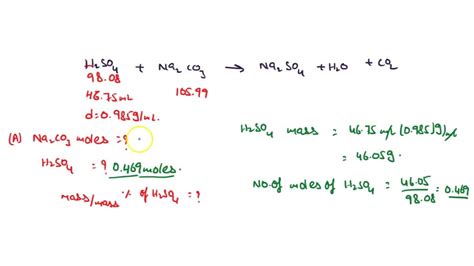 H₂SO₄ + Na₂CO₃ → Na₂SO₄ + H₂O + CO₂
98.08 105.99
46.75mL
d=0.985g/mL
(A) Na₂CO₃ moles = ?
H₂SO₄ = ? 0.469 moles.
mass/mass % of H₂SO₄ = ?
H₂SO₄ mass = 46.75 mL (0.985)g/mL
= 46.05g
No. of moles of H₂SO₄ = 46.05/98.08 = 0.469